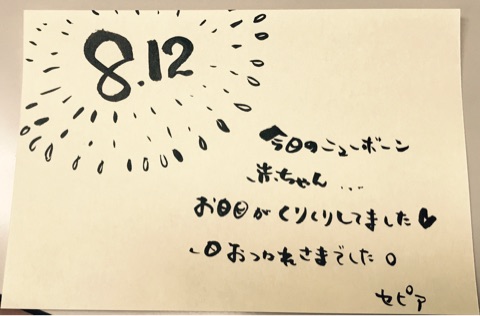 8.12
今日のニューボーン
赤ちゃん...
お目目がくりくりしてました♥
1日おつかれさまでした。
セピア